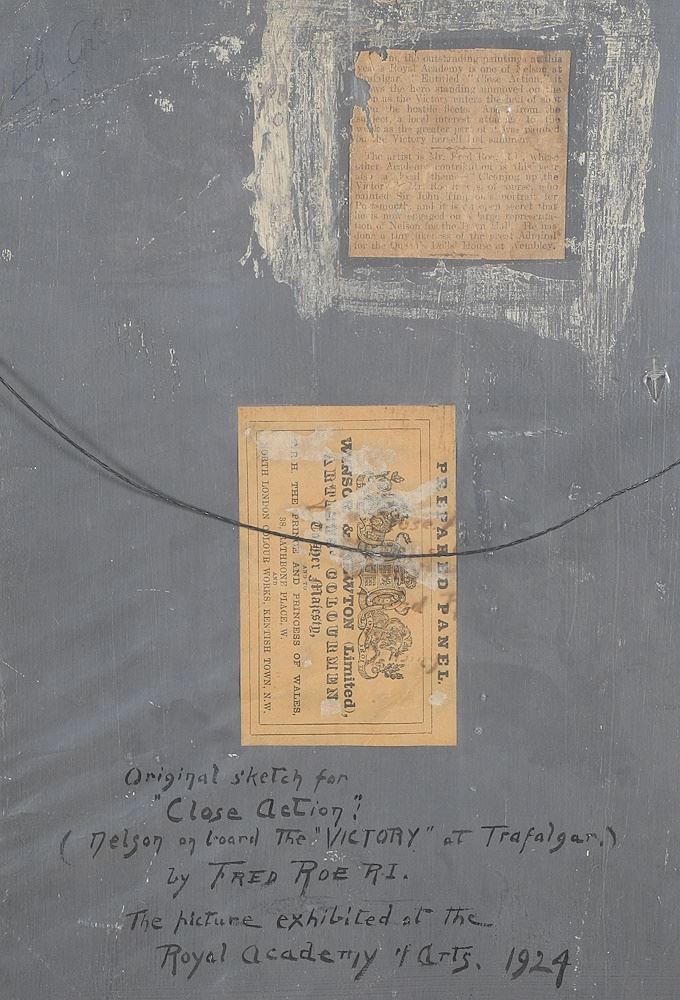 the outstanding printings at this
Royal Academy is one of Nelson at
Trafalgar. Entitled "Close Action" it
the hero standing unmoved on the
as the Victory enters the hail of shot
the hostile fleets. Apart from the
subject, a local interest attaches to the
work as the greater part of it was painted
on the Victory herself last summer.
The artist is Mr. Fred Roe, R.I., whose
other Academy contribution this year
also "Cleaning up the
Victory." Mr. Roe it was, of course, who
painted Sir John portrait for
Portsmouth, and it is an open secret that
he is now engaged on a large representa-
tion of Nelson for the Town Hall. He has
done a tiny likeness of the great Admiral
for the Queen's Dolls' House at Wembley.
PREPARED PANEL
WINSOR & NEWTON (Limited),
ARTISTS' COLOURMEN
To Her Majesty,
AND TO
T.R.H. THE PRINCE AND PRINCESS OF WALES,
38, RATHBONE PLACE, W.
AND
NORTH LONDON COLOUR WORKS, KENTISH TOWN, N.W.
Original sketch for
"Close Action".
(Nelson on board the "VICTORY" at Trafalgar.)
by FRED ROE R.I.
The picture exhibited at the
Royal Academy of Arts. 1924